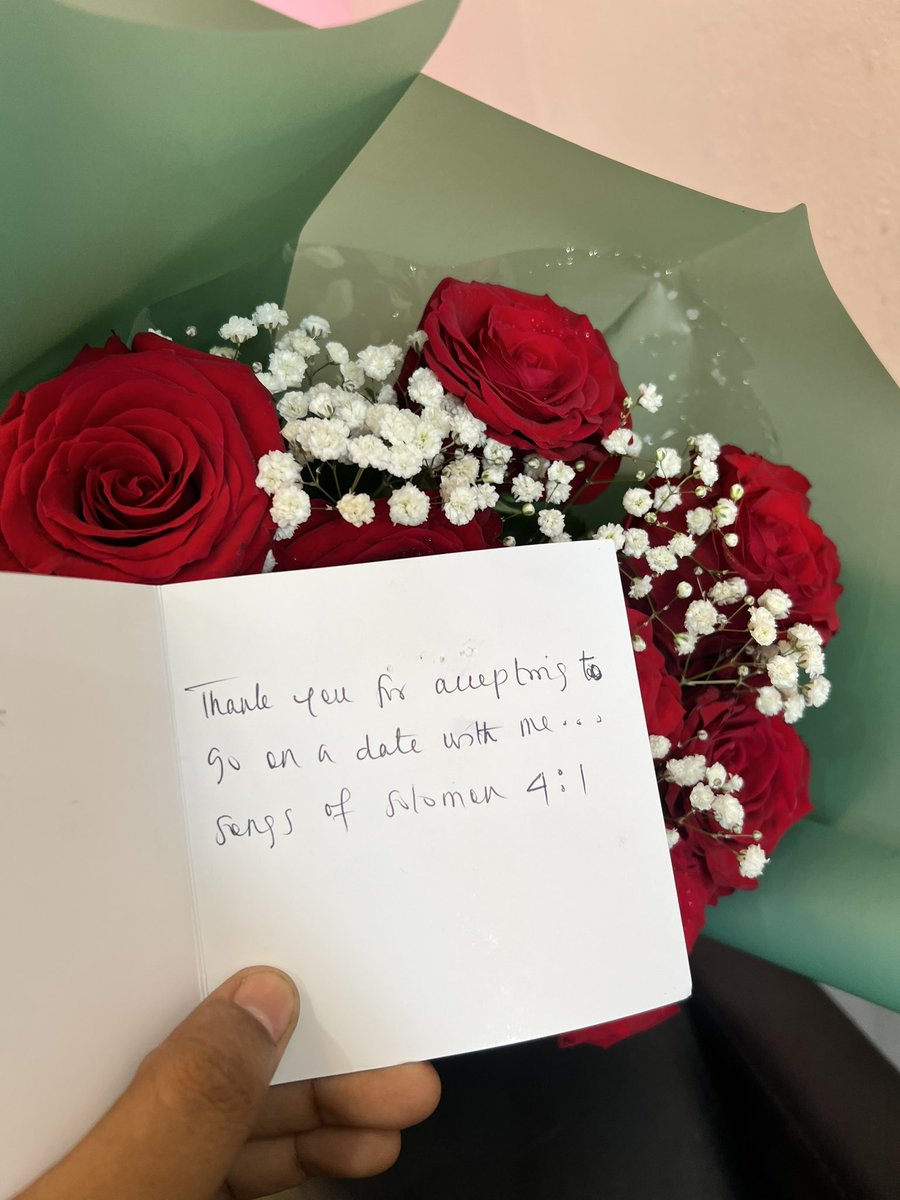 Thank you for accepting to
go on a date with me...
songs of solomon 4:1